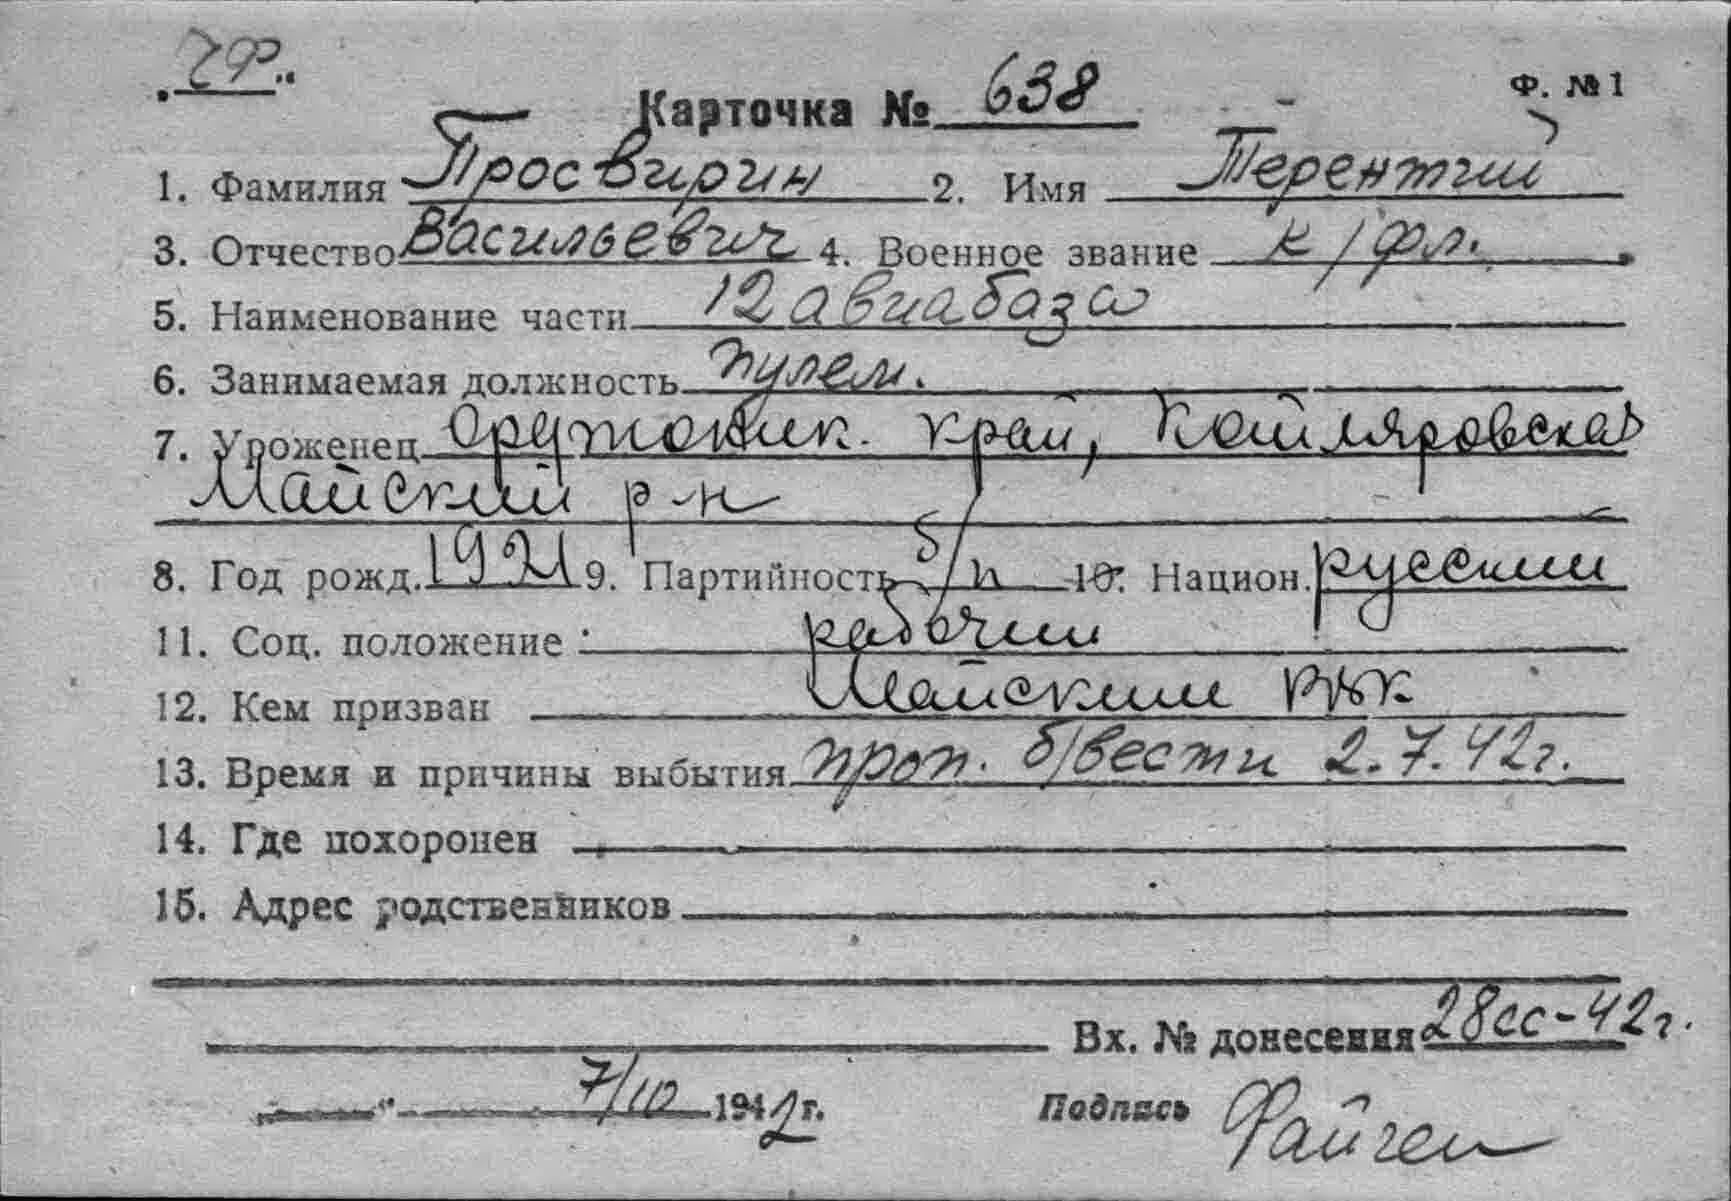 ЧФ.
Карточка № 638 Ф. № 1
1. Фамилия Просвирин 2. Имя Терентий
3. Отчество Васильевич 4. Военное звание к/фл.
5. Наименование части 12 авиабаза
6. Занимаемая должность пулем.
7. Уроженец Орджоник. край, Котляровская
Майский р-н
8. Год рожд. 1921 9. Партийность б/п 10. Национ. русский
11. Соц. положение: рабочий
12. Кем призван Майским РВК
13. Время и причины выбытия проп. б/вести 2.7.42г.
14. Где похоронен
15. Адрес родственников
Вх. № донесения 28сс-42г.
" 7/10 1942 г. Подпись